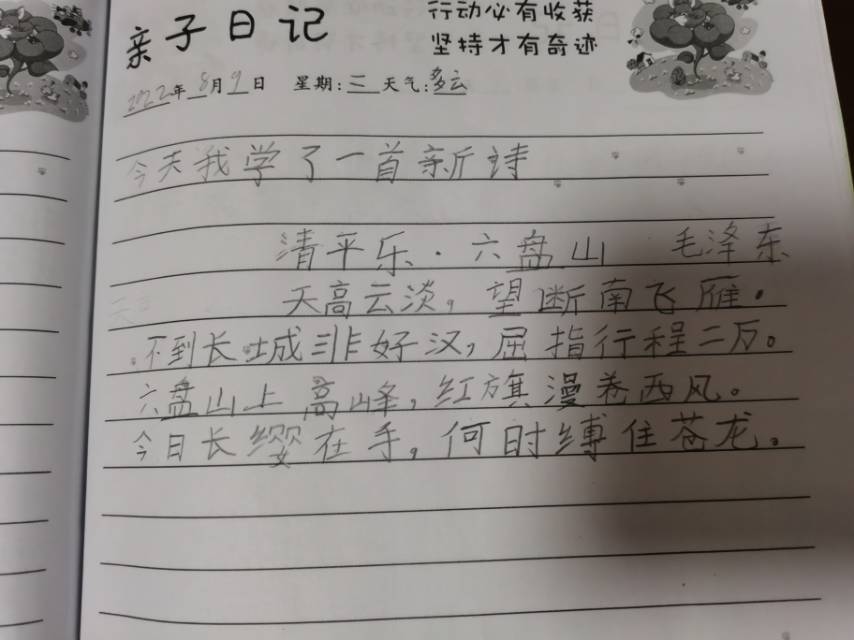 亲子日记
行动必有收获
坚持才有奇迹
2022年8月9日 星期:三 天气:多云
今天我学了一首新诗
清平乐·六盘山 毛泽东
天高云淡,望断南飞雁。
不到长城非好汉,屈指行程二万。
六盘山上高峰,红旗漫卷西风。
今日长缨在手,何时缚住苍龙。